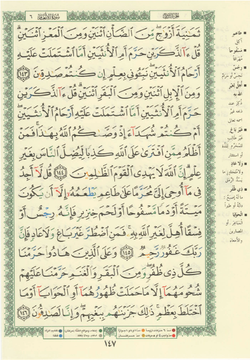 ثَمَٰنِيَةَ أَزْوَٰجٍ مِّنَ ٱلضَّأْنِ ٱثْنَيْنِ وَمِنَ ٱلْمَعْزِ ٱثْنَيْنِ
قُلْ ءَآلذَّكَرَيْنِ حَرَّمَ أَمِ ٱلْأُنثَيَيْنِ أَمَّا ٱشْتَمَلَتْ عَلَيْهِ
أَرْحَامُ ٱلْأُنثَيَيْنِ نَبِّـُٔونِي بِعِلْمٍ إِن كُنتُمْ صَٰدِقِينَ ١٤٣
وَمِنَ ٱلْإِبِلِ ٱثْنَيْنِ وَمِنَ ٱلْبَقَرِ ٱثْنَيْنِ قُلْ ءَآلذَّكَرَيْنِ
حَرَّمَ أَمِ ٱلْأُنثَيَيْنِ أَمَّا ٱشْتَمَلَتْ عَلَيْهِ أَرْحَامُ ٱلْأُنثَيَيْنِ
أَمْ كُنتُمْ شُهَدَآءَ إِذْ وَصَّىٰكُمُ ٱللَّهُ بِهَٰذَا فَمَنْ
أَظْلَمُ مِمَّنِ ٱفْتَرَىٰ عَلَى ٱللَّهِ كَذِبًا لِّيُضِلَّ ٱلنَّاسَ بِغَيْرِ
عِلْمٍ إِنَّ ٱللَّهَ لَا يَهْدِي ٱلْقَوْمَ ٱلظَّٰلِمِينَ ١٤٤ قُل لَّآ أَجِدُ
فِي مَآ أُوحِيَ إِلَيَّ مُحَرَّمًا عَلَىٰ طَاعِمٍ يَطْعَمُهُۥٓ إِلَّآ أَن يَكُونَ
مَيْتَةً أَوْ دَمًا مَّسْفُوحًا أَوْ لَحْمَ خِنزِيرٍ فَإِنَّهُۥ رِجْسٌ أَوْ
فِسْقًا أُهِلَّ لِغَيْرِ ٱللَّهِ بِهِۦ فَمَنِ ٱضْطُرَّ غَيْرَ بَاغٍ وَلَا عَادٍ فَإِنَّ
رَبَّكَ غَفُورٌ رَّحِيمٌ ١٤٥ وَعَلَى ٱلَّذِينَ هَادُوا۟ حَرَّمْنَا
كُلَّ ذِي ظُفُرٍ وَمِنَ ٱلْبَقَرِ وَٱلْغَنَمِ حَرَّمْنَا عَلَيْهِمْ
شُحُومَهُمَآ إِلَّا مَا حَمَلَتْ ظُهُورُهُمَآ أَوِ ٱلْحَوَايَآ أَوْ مَا
ٱخْتَلَطَ بِعَظْمٍ ذَٰلِكَ جَزَيْنَٰهُم بِبَغْيِهِمْ وَإِنَّا لَصَٰدِقُونَ ١٤٦
١٤٧